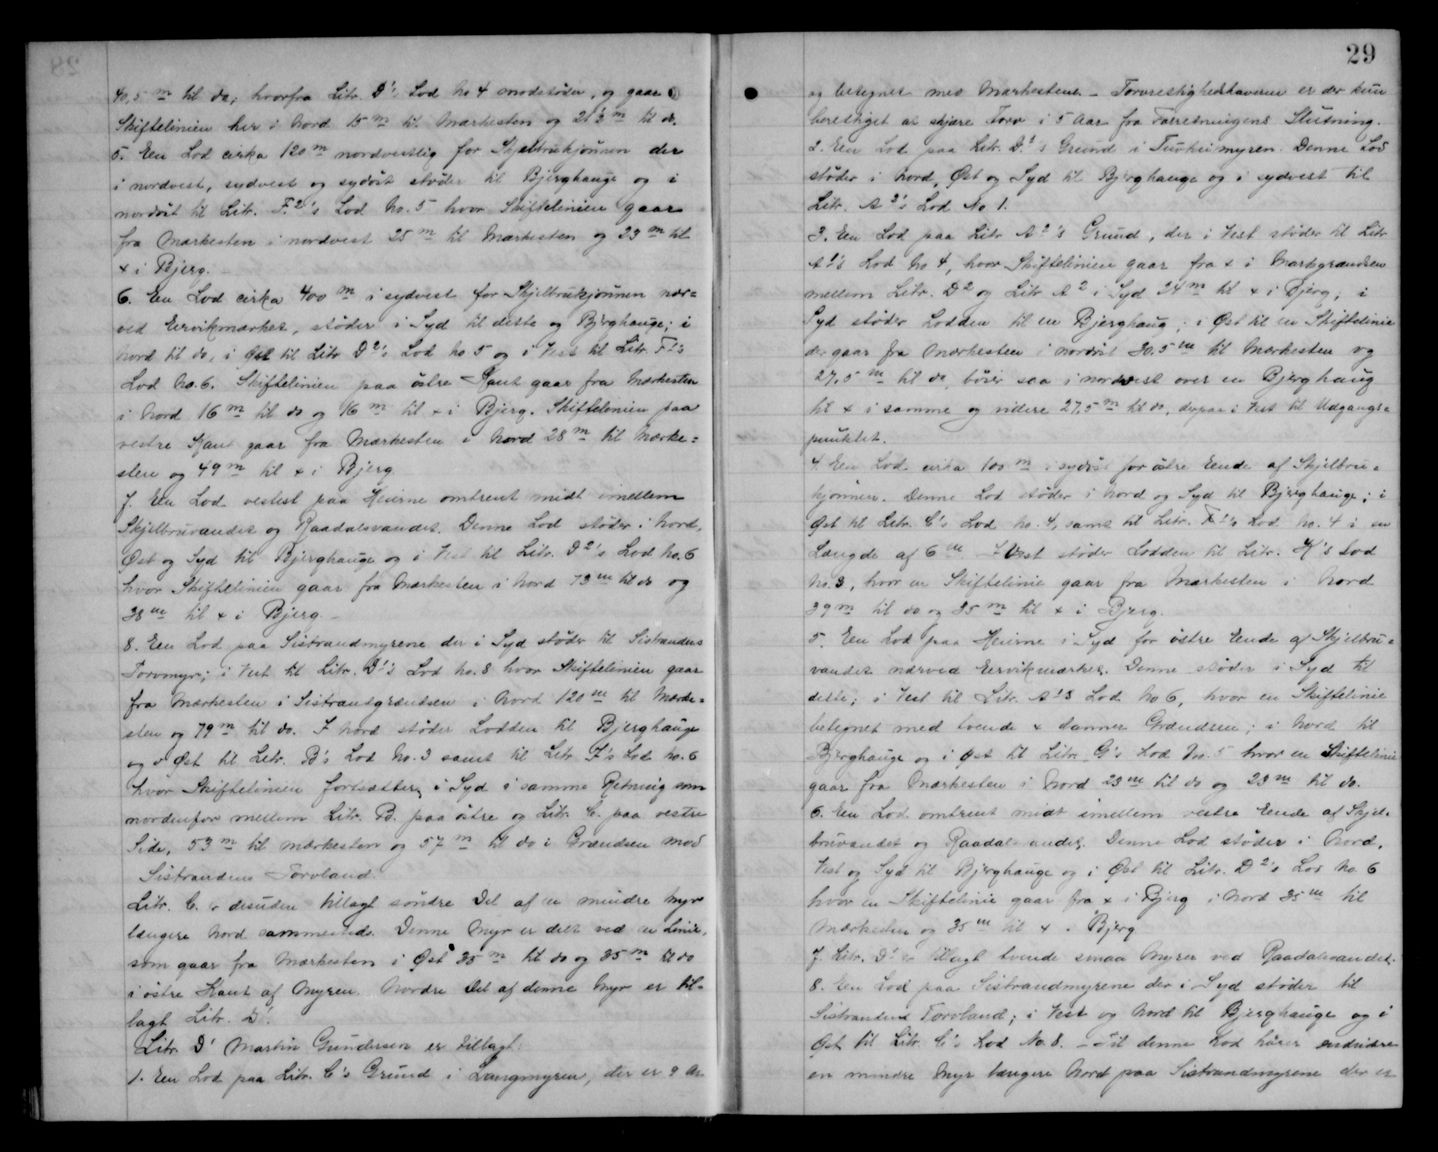 40,5 m til do, hvorfra Litr. D1's Lod No 4 modstöder, og gaar
Skiftelinien her i Nord 15 m til Mærkesten og 21,3 m til do.
5. Een Lod cirka 120 m nordvestlig for Skjelbrukjønnen der
i nordvest, sydvest og sydöst støder til Bjerghauge og i
nordöst til Litr. F.2's Lod No. 5 hvor Skiftelinien gaar
fra Mærkesten i nordvest 25 m til Mærkesten og 23 m til
x i Bjerg.
6. Een Lod cirka 400 m i sydvest for Skjelbrukjønnen nær=
ved Eervikmærket, støder i Syd til dette og Bjerghauge; i
Nord til do, i Øst til Litr D2's Lod No 5 og i Vest til Litr. F1's
Lod No. 6. Skiftelinien paa östre Kant gaar fra Mærkesten
i Nord 16 m til do og 16 m til x i Bjerg. Skiftelinien paa
vestre Kant gaar fra Mærkesten i Nord 28 m til Mærke=
sten og 49 m til x i Bjerg
7. Een Lod vestest paa Heierne omtrent midt imellem
Skjelbruvandet og Raadalsvandet. Denne Lod støder i Nord,
Öst og Syd til Bjerghauge og i Vest til Litr. D2's Lod No. 6
hvor Skiftelinien gaar fra Mærkesten i Nord 73 m til do og
28 m til x i Bjerg. –
8. Een Lod paa Sistrandmyrene der i Syd støder til Sistrandens
Torvmyr; i Vest til Litr. D1's Lod No. 8 hvor Skiftelinien gaar
fra Mærkesten i Sistrandgrændsen i Nord 120 m til Mærke=
sten og 79 m til do. I Nord støder Lodden til Bjerghauge
og i Öst til Litr. B's Lod No. 3 samt til Litr. F's Lod No. 6
hvor Skiftelinien fortsætter i Syd i samme Retning som
nordenfor mellem Litr. B. paa östre og Litr. C. paa vestre
Side, 53 m til Mærkesten og 57 m til do i Grændsen mod
Sistrandens Torvland.
Litr. C. er desuden tillagt söndre Del af en mindre Myr
længere Nord sammesteds. Denne Myr er delt ved en Linie,
som gaar fra Mærkesten i Øst 25 m til do og 25 m til do
i östre Kant af Myren. Nordre Del af denne Myr er til=
lagt Litr. D1.
Litr. D1 Martin Gundersen er tillagt:
1. Een Lod paa Litr. C's Grund i Langmyren, der er 9 Ar
29
og betegnet med Mærkestene. – Torverettighedshaveren er der kun
berettiget at skjære Torv i 5 Aar fra Forretningens Slutning.
2. Een Lod paa Litr. D2's Grund i Tuvheimyren. Denne Lod
støder i Nord, Øst og Syd til Bjerghauge og i sydvest til
Litr. A2's Lod No 1.
3. Een Lod paa Litr A2's Grund, der i Vest støder til Litr
A1's Lod No 4, hvor Skiftelinien gaar fra x i Markgrændsen
mellem Litr. D2 og Litr A2 i Syd 24 m til x i Bjerg; i
Syd støder Lodden til en Bjerghaug; i Öst til en Skiftelinie
der gaar fra Mærkesten i nordöst 30,5 m til Mærkesten og
27,5 m til do, böier saa i nordvest over en Bjerghaug
til x i samme og videre 27,5 m til do, derpaa i Vest til Udgangs=
punktet.
4 Een Lod cirka 100 m i sydöst for östre Eende af Skjelbru=
kjønnen. Denne Lod støder i Nord og Syd til Bjerghauge; i
Øst til Litr. C's Lod No. 4, samt til Litr. F1's Lod No. 4 i en
Længde af 6 m I Vest støder Lodden til Litr. H's Lod
No. 3, hvor en Skiftelinie gaar fra Mærkesten i Nord
29 m til do og 25 m til x i Bjerg.
5. Een Lod paa Heierne i Syd for östre Eende af Skjelbru=
vandet nærved Eervikmærket. Denne støder i Syd til
dette; i Vest til Litr. A1's Lod No 6, hvor en Skiftelinie
betegnet med tvende x danner Grændsen; i Nord til
Bjerghauge og i Øst til Litr. G's Lod No. 5 hvor en Skiftelinie
gaar fra Mærkesten i Nord 23 m til do og 23 m til do.
6. Een Lod omtrent midt imellem vestre Eende af Skjel=
bruvandet og Raadalsvandet. Denne Lod støder i Nord,
Vest og Syd til Bjerghauge og i Øst til Litr. D2's Lod No. 6
hvor en Skiftelinie gaar fra x i Bjerg i Nord 35 m til
Mærkesten og 35 m til x i Bjerg
7. Litr. D1 er tillagt tvende smaa Myrer ved Raadalsvandet.
8. Een Lod paa Sistrandmyrene der i Syd støder til
Sistrandens Torvland; i Vest og Nord til Bjerghauge og i
Øst til Litr. C's Lod No. 8. – Til denne Lod hörer endvidere
en mindre Myr længere Nord paa Sistrandmyrene der er